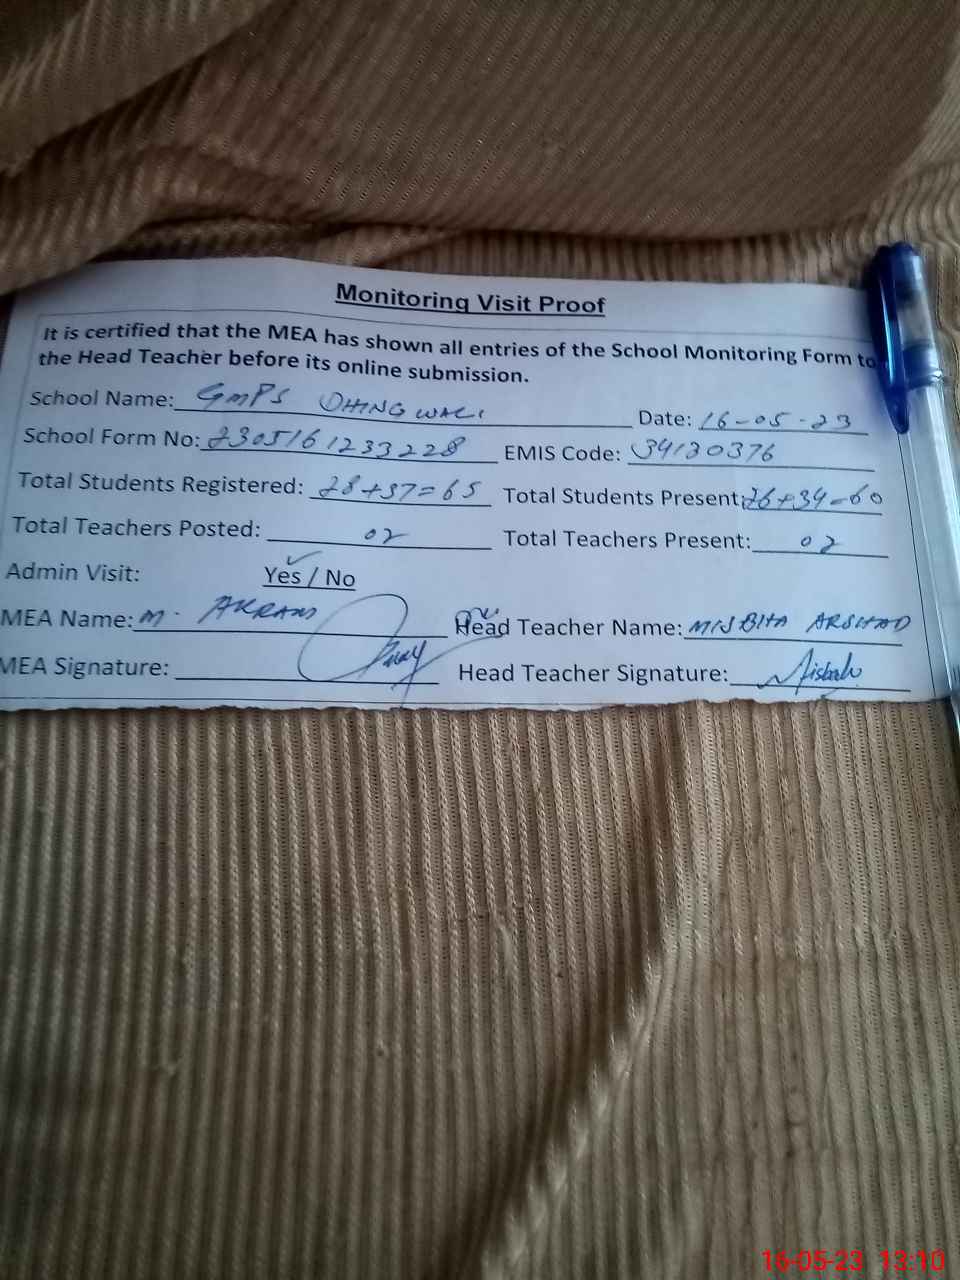 Monitoring Visit Proof
It is certified that the MEA has shown all entries of the School Monitoring Form to
the Head Teacher before its online submission.
School Name: GMPS DHINGWALI Date: 16-05-23
School Form No: 2305161233228 EMIS Code: 34120376
Total Students Registered: 28+37=65 Total Students Present: 26+34=60
Total Teachers Posted: 02 Total Teachers Present: 02
Admin Visit: Yes / No
MEA Name: M. AKRAM Head Teacher Name: MISBHA ARSHAD
MEA Signature: Head Teacher Signature: Misbah
16-05-23 13:10